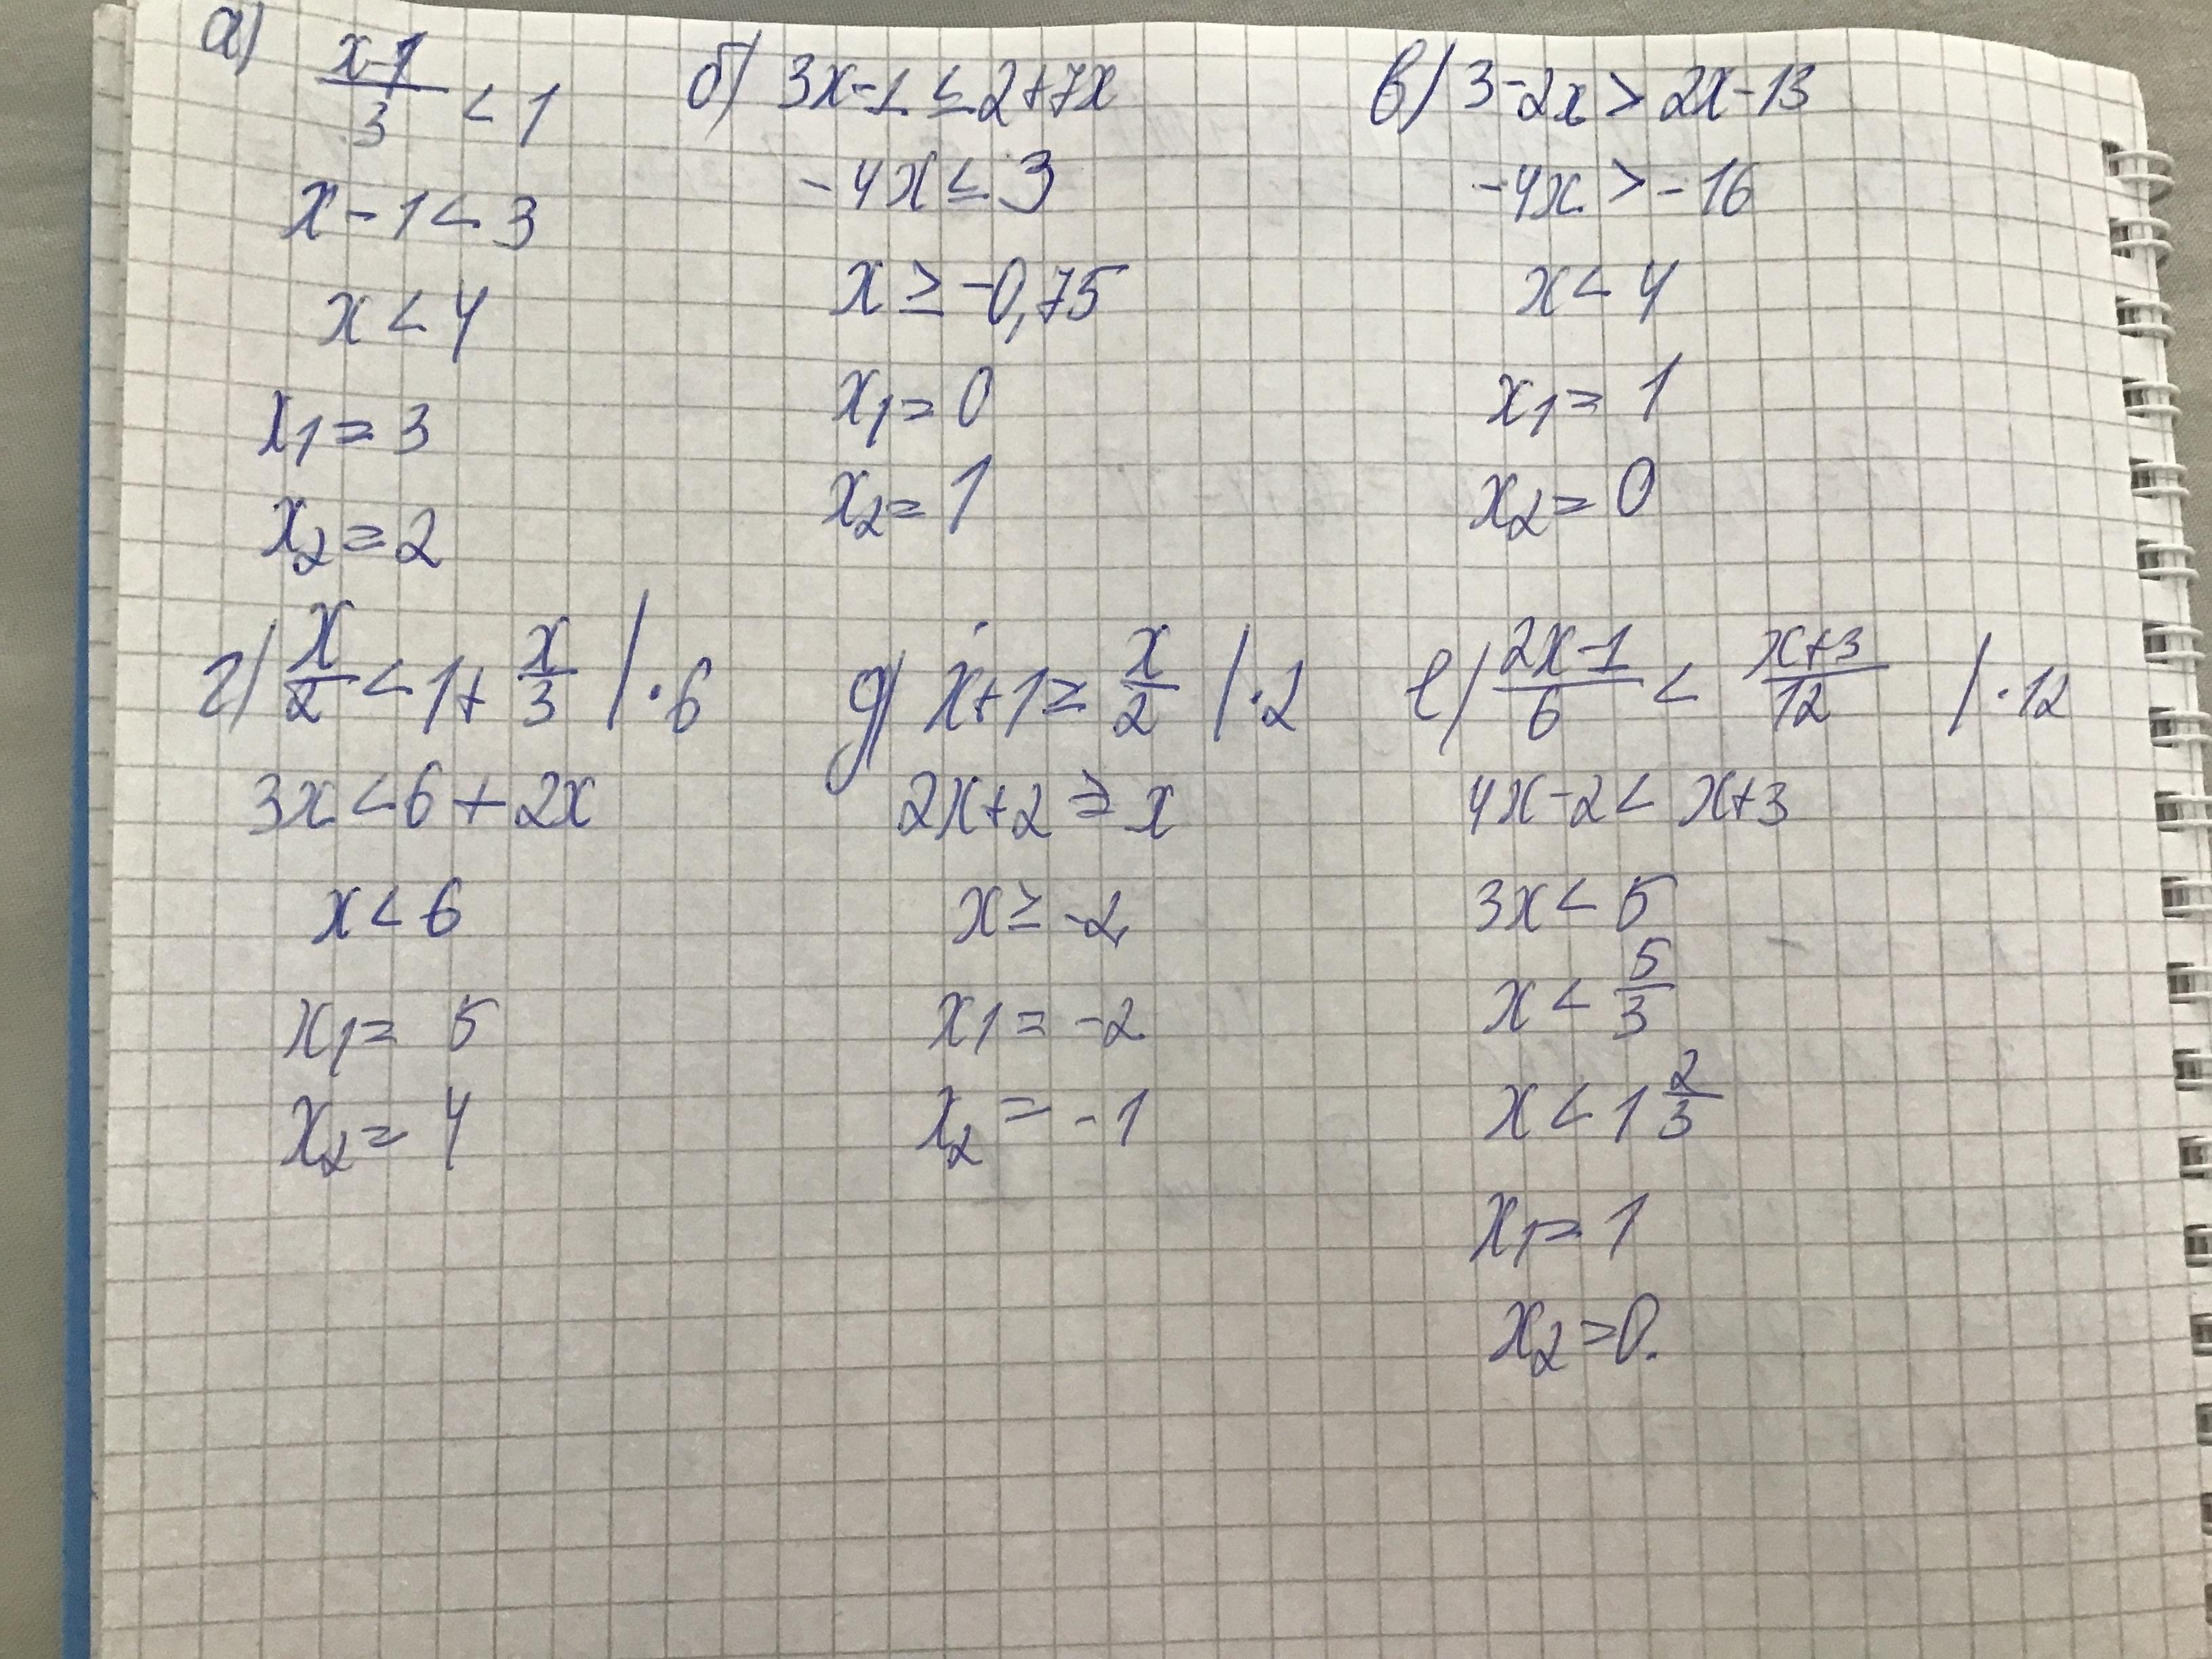 а) x-1/3 < 1
x - 1 < 3
x < 4
x1 = 3
x2 = 2
б) 3x-1 ≤ 2+7x
-4x ≤ 3
x ≥ -0,75
x1 = 0
x2 = 1
в) 3-2x > 2x-13
-4x > -16
x < 4
x1 = 1
x2 = 0
г) x/2 < 1 + x/3 / · 6
3x < 6 + 2x
x < 6
x1 = 5
x2 = 4
д) x+1 ≥ x/2 / · 2
2x+2 ≥ x
x ≥ -2
x1 = -2
x2 = -1
е) 2x-1/6 < x+3/12 / · 12
4x-2 < x+3
3x < 5
x < 5/3
x < 1 2/3
x1 = 1
x2 = 0.